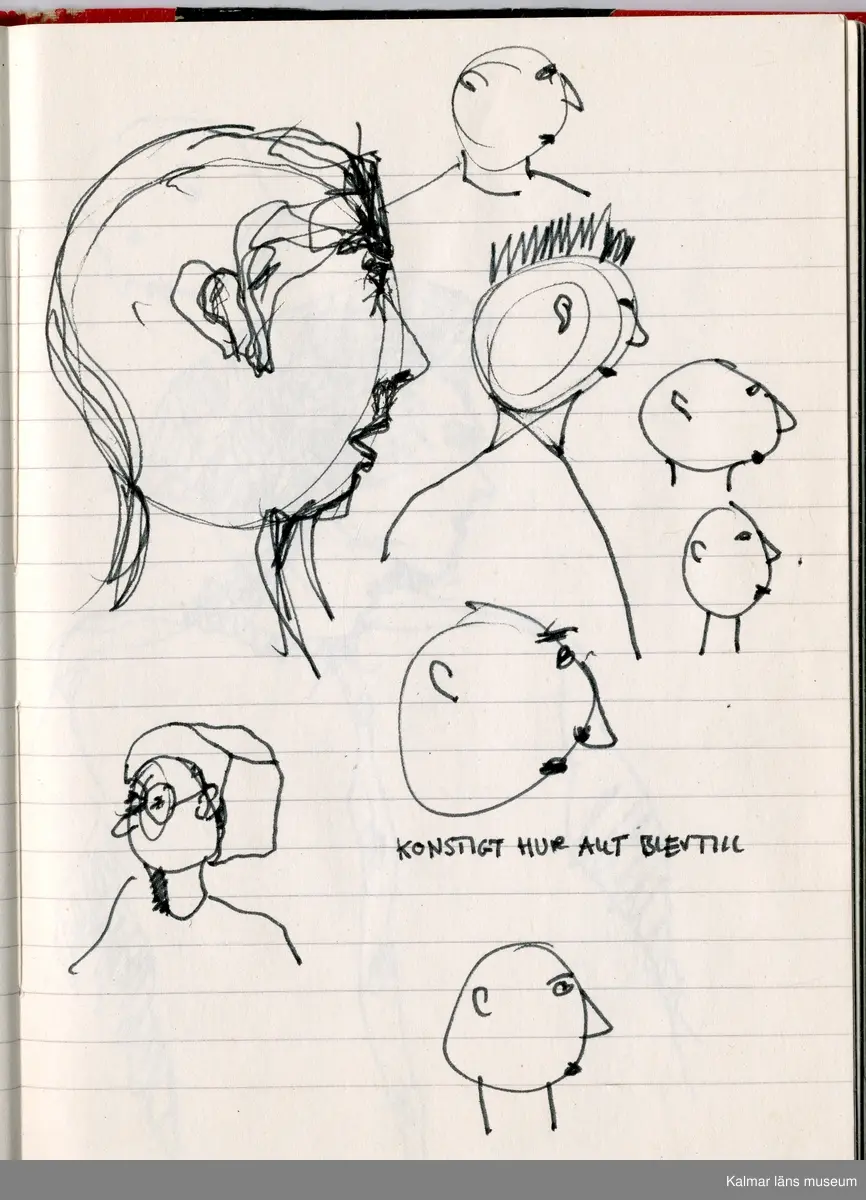 KONSTIGT HUR ALLT BLEV TILL
Kalmar läns museum